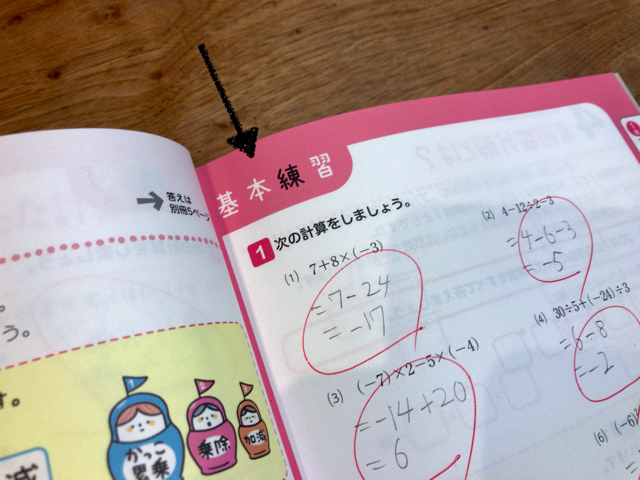 答えは
別冊5ページ
う。
す。
1
2
3
かっこ
累乗
乗除
加減
減
基本練習
1 次の計算をしましょう。
(1) 7+8×(−3)
=7−24
=−17
(2) 4−12÷2−3
=4−6−3
=−5
(3) (−7)×2−5×(−4)
=−14+20
=6
(4) 30÷5+(−24)÷3
=6−8
=−2
(6)